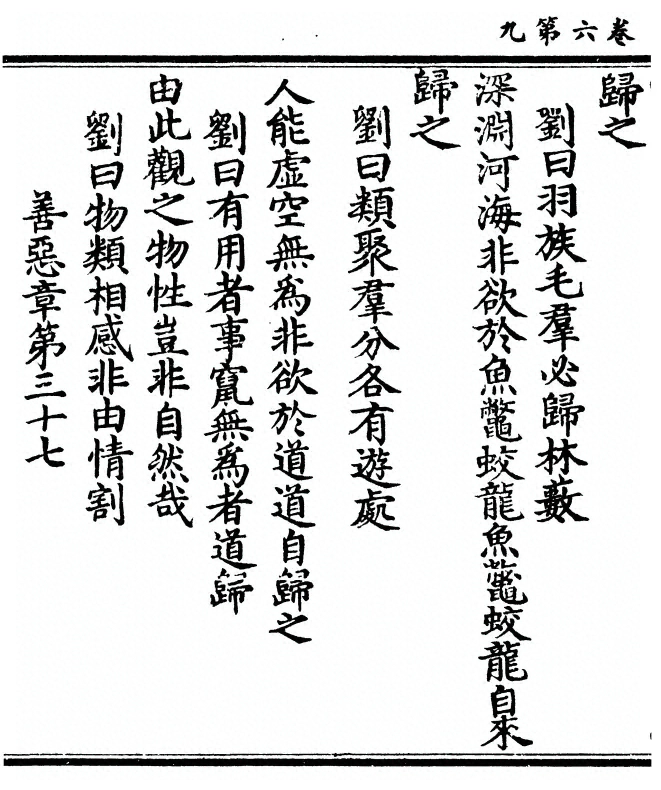 卷六第九
歸之
劉曰羽族毛羣必歸林藪
深淵河海非欲於魚鼈蛟龍魚鼈蛟龍自來
歸之
劉曰類聚羣分各有遊處
人能虛空無為非欲於道道自歸之
劉曰有用者事竄無為者道歸
由此觀之物性豈非自然哉
劉曰物類相感非由情割
善惡章第三十七